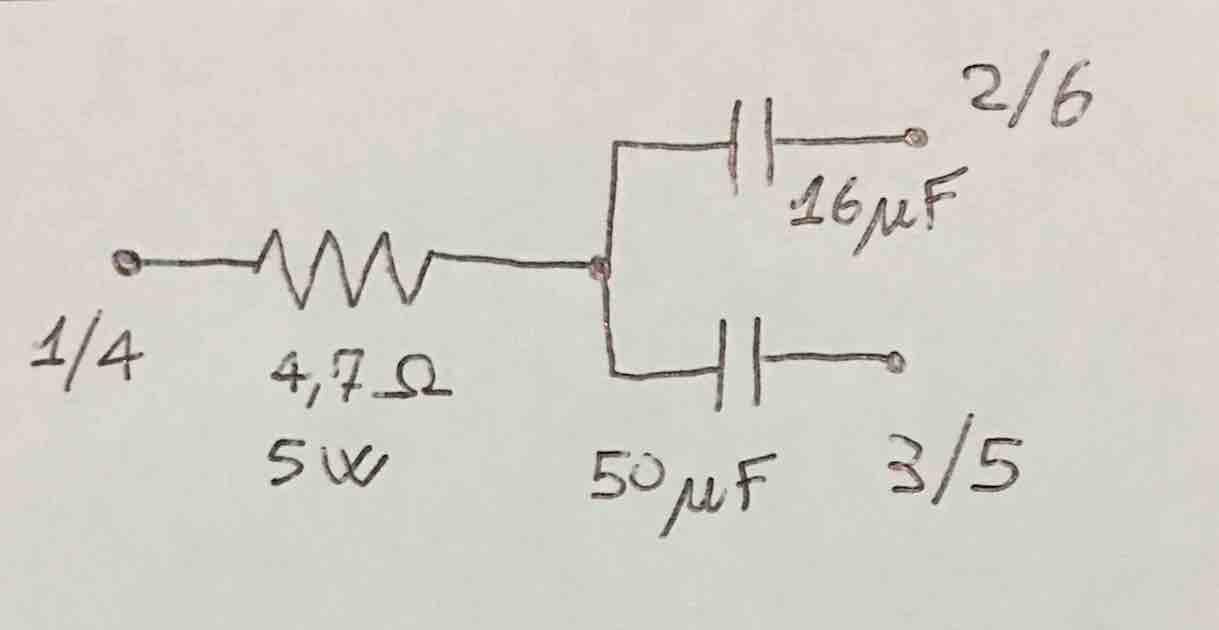 2/6
16µF
1/4
4,7Ω
5W
50µF
3/5